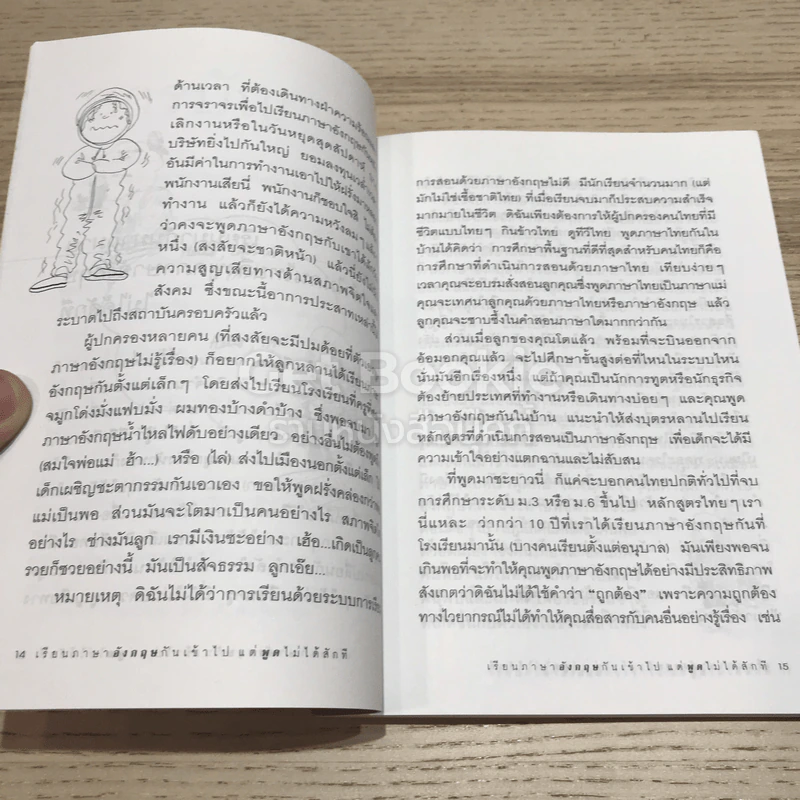 ด้านเวลา ที่ต้องเดินทางฝ่าความ
การจราจรเพื่อไปเรียนภาษาอังกฤษ
เลิกงานหรือในวันหยุดสุดสัปดาห์
บริษัทยิ่งไปกันใหญ่ ยอมลงทุน
อันมีค่าในการทำงานเอาไปให้ฝรั่ง
พนักงานเสียนี่ พนักงานก็ชอบใจสิ
ทำงาน แล้วก็ยังได้ความหวังลมๆ
ว่าคงจะพูดภาษาอังกฤษกับเขาได้
หนึ่ง (สงสัยจะชาติหน้า) แล้วนี่ยัง
ความสูญเสียทางด้านสภาพจิตใจ
สังคม ซึ่งขณะนี้อาการประสาทเหล่า
ระบาดไปถึงสถาบันครอบครัวแล้ว
ผู้ปกครองหลายคน (ที่สงสัยจะมีปมด้อยที่
ภาษาอังกฤษไม่รู้เรื่อง) ก็อยากให้ลูกหลานได้เรียน
อังกฤษกันตั้งแต่เล็กๆ โดยส่งไปเรียนโรงเรียนที่ครู
จมูกโด่งมั่งแฟบมั่ง ผมทองบ้างดำบ้าง ซึ่งพอจบมา
ภาษาอังกฤษน้ำไหลไฟดับอย่างเดียว อย่างอื่นไม่ต้อง
(สมใจพ่อแม่ ฮ้า...) หรือ (ไล่) ส่งไปเมืองนอกตั้งแต่เล็ก
เด็กเผชิญชะตากรรมกันเอาเอง ขอให้พูดฝรั่งคล่องกว่า
แม่เป็นพอ ส่วนมันจะโตมาเป็นคนอย่างไร สภาพจิต
อย่างไร ช่างมันลูก เรามีเงินซะอย่าง เฮ้อ...เกิดเป็นลูก
รวยก็ซวยอย่างนี้ มันเป็นสัจธรรม ลูกเอ๊ย...
หมายเหตุ ดิฉันไม่ได้ว่าการเรียนด้วยระบบการ
14 เรียนภาษาอังกฤษกันเข้าไป แต่พูดไม่ได้สักที
การสอนด้วยภาษาอังกฤษไม่ดี มีนักเรียนจำนวนมาก (แต่
มักไม่ใช่เชื้อชาติไทย) ที่เมื่อเรียนจบมาก็ประสบความสำเร็จ
มากมายในชีวิต ดิฉันเพียงต้องการให้ผู้ปกครองคนไทยที่มี
ชีวิตแบบไทยๆ กินข้าวไทย ดูทีวีไทย พูดภาษาไทยกันใน
บ้านได้คิดว่า การศึกษาพื้นฐานที่ดีที่สุดสำหรับคนไทยก็คือ
การศึกษาที่ดำเนินการสอนด้วยภาษาไทย เทียบง่ายๆ
เวลาคุณจะอบรมสั่งสอนลูกคุณซึ่งพูดภาษาไทยเป็นภาษาแม่
คุณจะเทศนาลูกคุณด้วยภาษาไทยหรือภาษาอังกฤษ แล้ว
ลูกคุณจะซาบซึ้งในคำสอนภาษาใดมากกว่ากัน
ส่วนเมื่อลูกของคุณโตแล้ว พร้อมที่จะบินออกจาก
อ้อมอกคุณแล้ว จะไปศึกษาขั้นสูงต่อที่ไหนในระบบไหน
นั่นมันอีกเรื่องหนึ่ง แต่ถ้าคุณเป็นนักการทูตหรือนักธุรกิจ
ต้องย้ายประเทศที่ทำงานหรือเดินทางบ่อยๆ และคุณพูด
ภาษาอังกฤษกันในบ้าน แนะนำให้ส่งบุตรหลานไปเรียน
หลักสูตรที่ดำเนินการสอนเป็นภาษาอังกฤษ เพื่อเด็กจะได้มี
ความเข้าใจอย่างแตกฉานและไม่สับสน
ที่พูดมาซะยาวนี่ ก็แค่จะบอกคนไทยปกติทั่วไปที่จบ
การศึกษาระดับ ม.3 หรือ ม.6 ขึ้นไป หลักสูตรไทยๆ เรา
นี่แหละ ว่ากว่า 10 ปีที่เราได้เรียนภาษาอังกฤษกันที่
โรงเรียนมานั้น (บางคนเรียนตั้งแต่อนุบาล) มันเพียงพอจน
เกินพอที่จะทำให้คุณพูดภาษาอังกฤษได้อย่างมีประสิทธิภาพ
สังเกตว่าดิฉันไม่ได้ใช้คำว่า "ถูกต้อง" เพราะความถูกต้อง
ทางไวยากรณ์ไม่ได้ทำให้คุณสื่อสารกับคนอื่นอย่างรู้เรื่อง เช่น
เรียนภาษาอังกฤษกันเข้าไป แต่พูดไม่ได้สักที 15